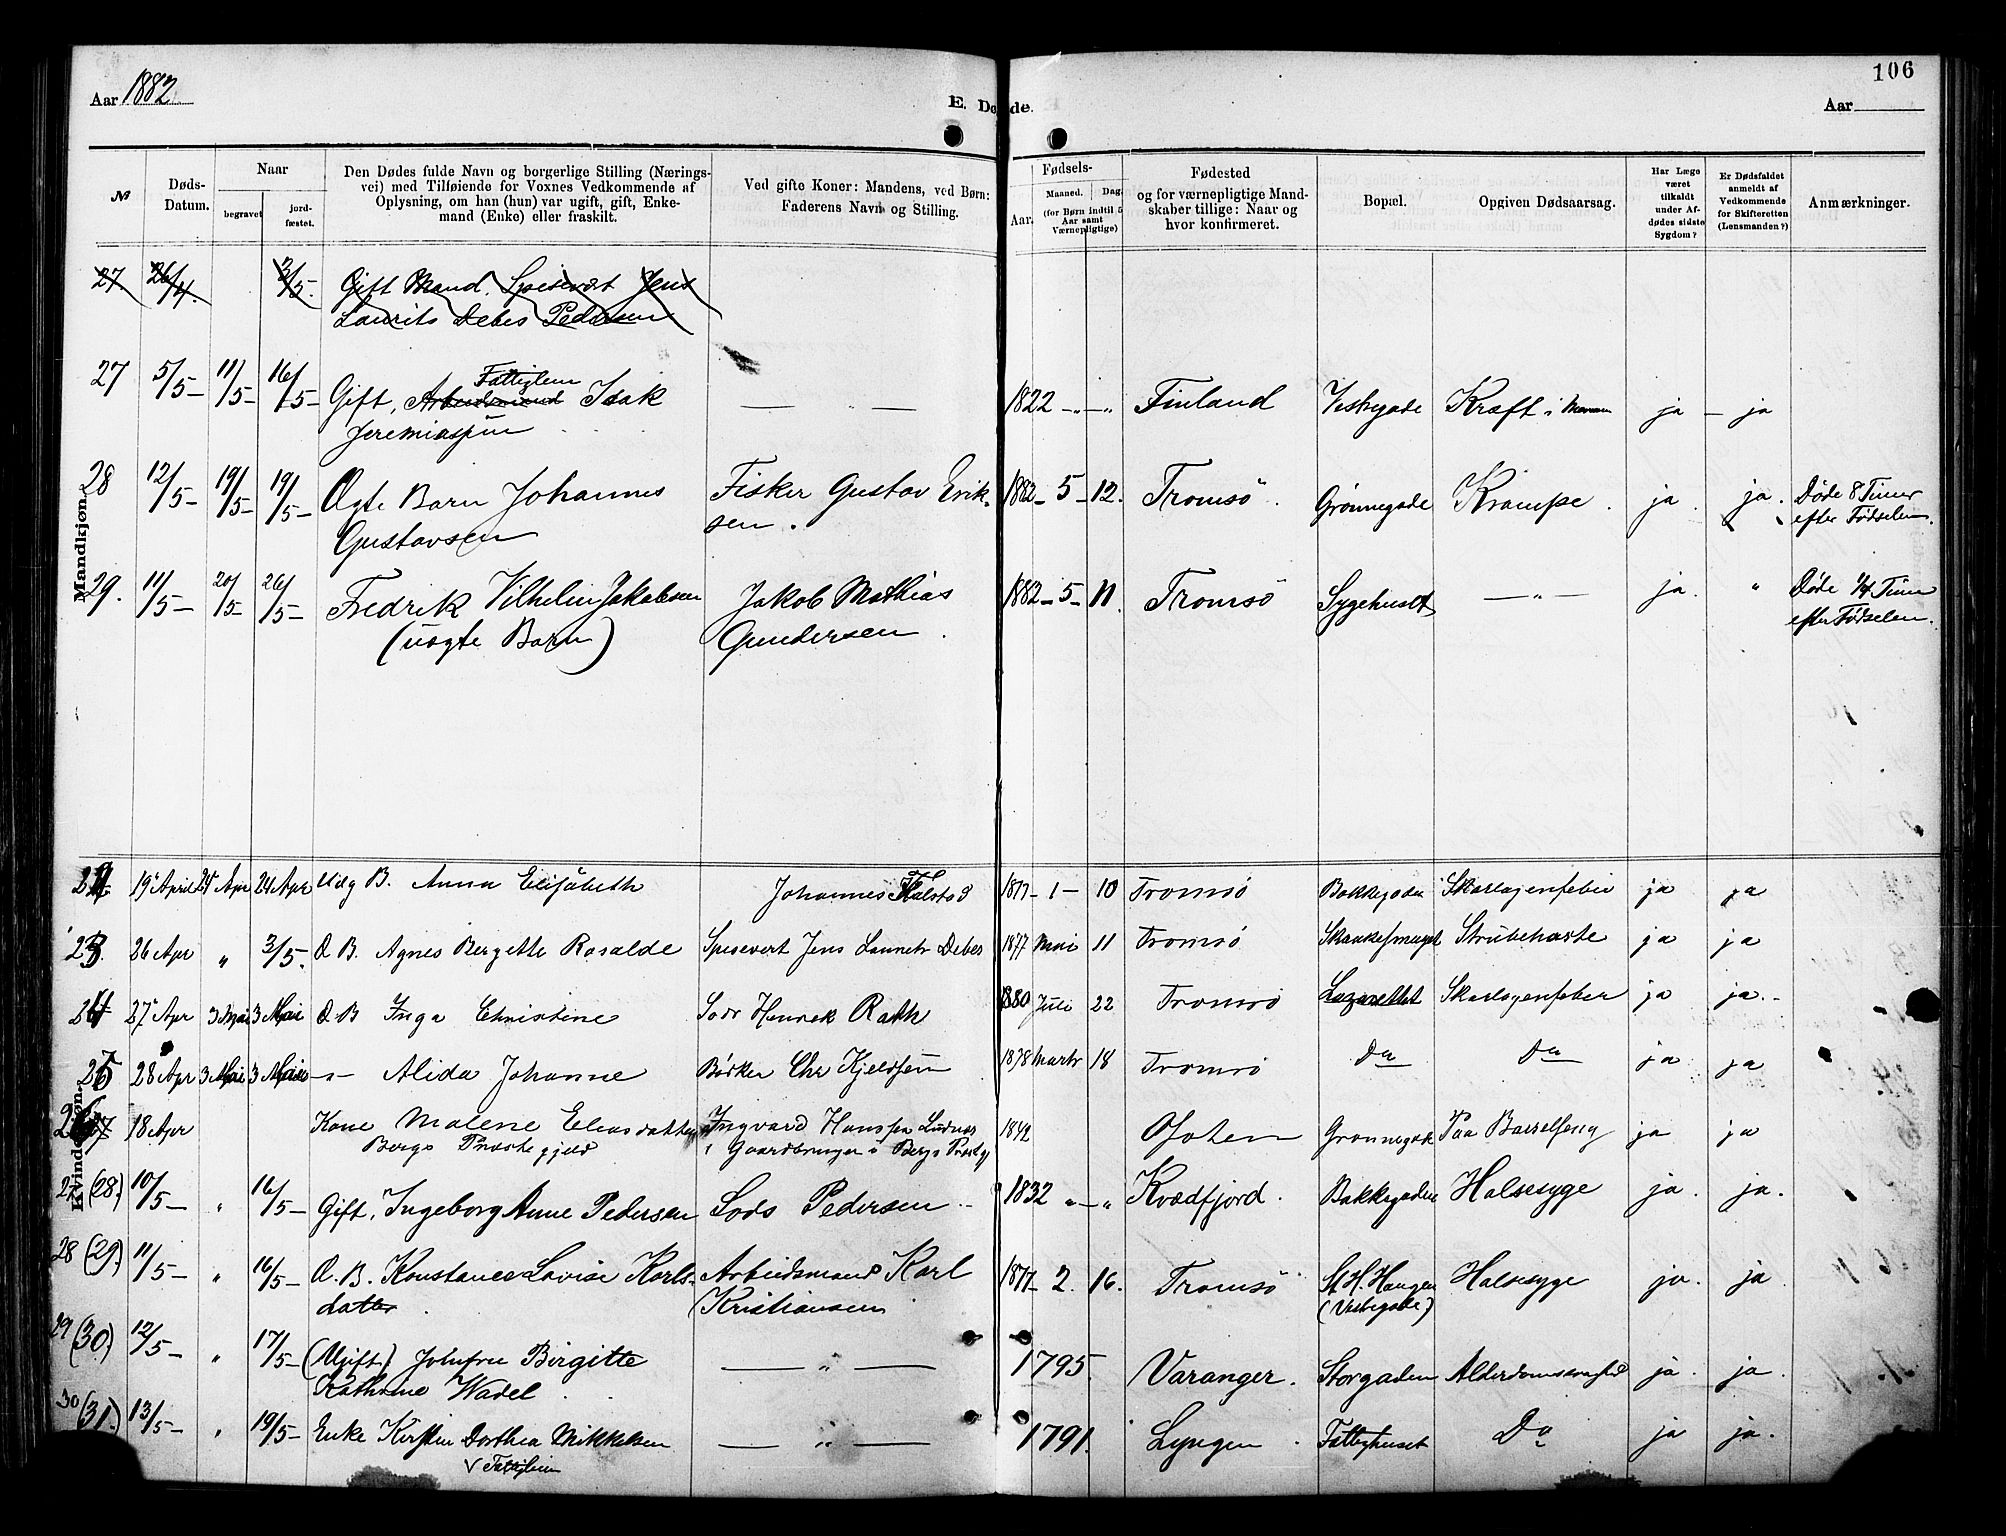 106
Aar 1882
E. Døde.
Aar
№
Døds-Datum.
Naar
begravet
jord-fæstet.
Den Dødes fulde Navn og borgerlige Stilling (Nærings-
vei) med Tilføiende for Voxnes Vedkommende af
Oplysning, om han (hun) var ugift, gift, Enke-
mand (Enke) eller fraskilt.
Ved gifte Koner: Mandens, ved Børn:
Faderens Navn og Stilling.
Fødsels-
Aar. Maaned. Dag.
(for Børn indtil 5
Aar samt
Værnepligtige)
Fødested
og for værnepligtige Mand-
skaber tillige: Naar og
hvor konfirmeret.
Bopæl.
Opgiven Dødsaarsag.
Har Læge
været
tilkaldt
under Af-
dødes sidste
Sygdom?
Er Dødsfaldet
anmeldt af
Vedkommende
for Skifteretten
(Lensmanden?)
Anmærkninger.
Mandkjøn.
27. 26/4. 3/5. Gift Mand, Spisevært Jens
Laurits Debes Pedersen
Fattiglem
27 5/5 – 11/5 – 16/5 – Gift, Arbeidsmand Isak — " — 1822 – " – " Finland Vestregade Kræft i Maven ja – ja
28 12/5 – 19/5 – 19/5 – Ægte Barn Johannes Fisker Gustav Erik- 1882 – 5 – 12. Tromsö. Grönnegade Krampe. ja. ja. Döde 8 Timer
Gustavsen sen. efter Födselen.
29. 11/5 – 20/5 – 26/5 – Fredrik Vilhelm Jakobsen Jakob Mathias 1882 – 5 – 11. Tromsö Sygehuset — " — ja. " Döde 1/4 Time
(uægte Barn) Gundersen. efter Födselen.
Kvindekjøn.
19 April 24 Apr 24 Apr B. Anna Elisabeth Johannes 1877 – 1 – 10 Tromsö Bakkegaden Skarlagenfeber ja ja
23. 26 Apr " 3/5. Æ B. Agnes Bergette Rosalde Spisevert Jens Debes 1877 Mai 11 Tromsö Strubehoste ja ja
24 27 Apr 3 Mai 3 Mai Æ B Inga Christine Lods Henrik Rath 1880 Juli 22 Tromsö Lazarettet Skarlagenfeber ja ja. –
25 28 Apr 3 Mai 3 Mai – " – Alida Johanne Bödker Chr Kjeldsen 1878 Marts 18 Tromsö Do Do ja ja
26 27 18 Apr Kone Malene Eliasdatter Ingvard Hanssen 1842 Ofoten Grønnegade Paa Barselseng ja ja
Bergs Præstegjeld Gaardbruger i Bergs Præstgj
27 (28.) 10/5 – " 16/5 – Gift, Ingeborg Anne Pedersen Lods Pedersen 1832 " – " Kvædfjord. Bakkegaden Halsesyge ja. ja.
28 (29.) 11/5 – " 16/5 – Æ. B. Konstance Lovise Karls- Arbeidsmand Karl 1877 – 2. 16. Tromsö St. H. Haugen Halsesyge ja. ja
datter. Kristiansen (Vestregade)
29 (30.) 12/5 – " 17/5 – (Ugift) Jomfru Birgitte — " — 1795. Varanger. Storgaden Alderdomssvaghed ja. ja.
Kathrine Wadel.
30 (31.) 13/5 – " 19/5 – Enke Kirstin Dorthea Mikkelsen — " — 1791. Lyngen. Fattighuset Do ja ja.
Fattiglem